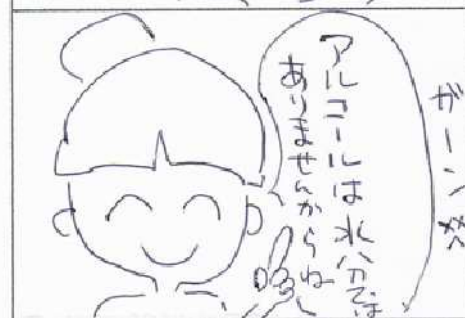 ガーン
アルコールは水分では
ありませんからね